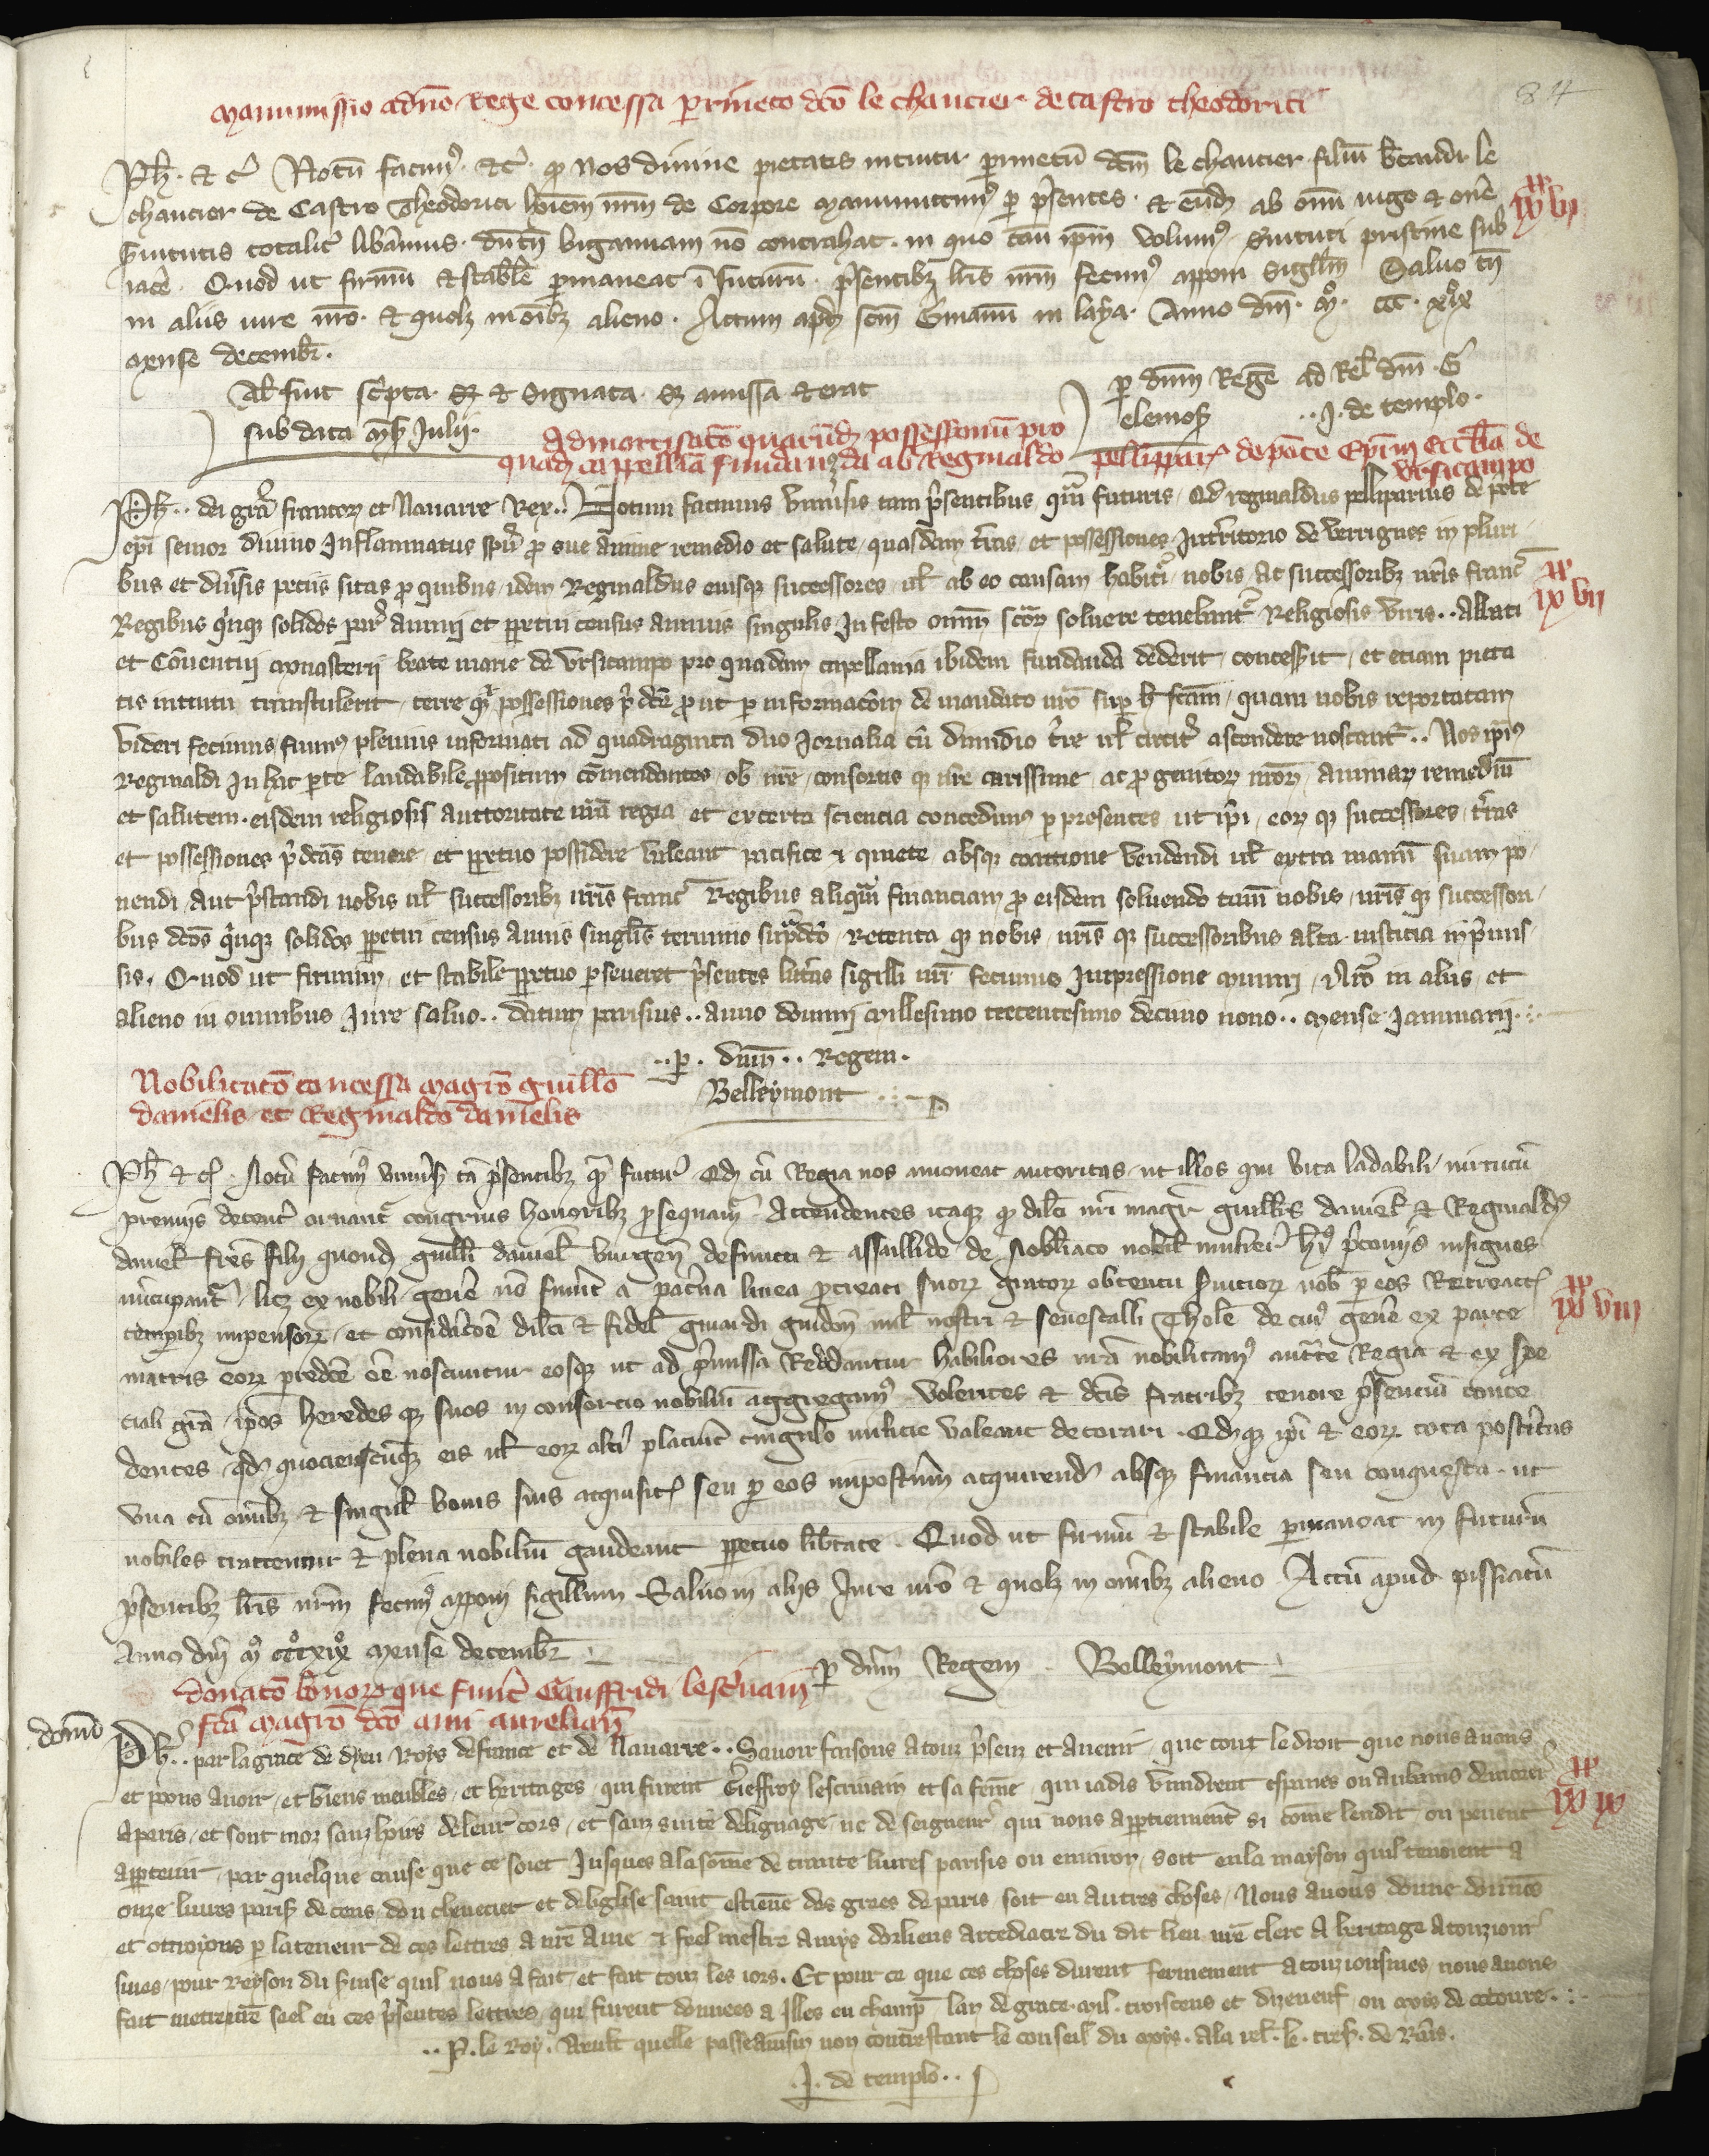 84
Manumissio a dno Rege concessa perrineto dco le chancier de castro theodorici
Ph. et c. Notum facimus. etc. quod nos divine pietatis intuitu perinetum dcm le chancier filium le
chancier de Castro Theodorici hoiem nrm de corpore manumittimus per presentes. et eundem ab omni iugo et onere
servitutis totaliter liberamus. dum tamen bigamiam non contrahat. in quo casu ipsum volumus servituti pristine sub
iacere. Quod ut firmum et stabile permaneat in futurum. presentibus litteris nrm fecimus apponi sigillum Salvo tamen
in aliis iure nro. et quolibet in omnibus alieno. Actum apud scm Germanum in laya. Anno dni. mo. ccc. xo ix
mense decembr.
Al. fuit scripta et signata amissa et erat
sub data mens. Julii.
per dnm Regem ad Rel. dni G
elemos. J. de templo.
ix xx vi
Admortisatio quarundam possessionum pro
quadam cappellania fundanda ab Reginaldo pellipar. de ponte Epi in ecclia de
ursicampo
Ph. dei gra francor et Navarre Rex. Notum facimus universis tam presentibus quam futuris. Quod reginaldus pelliparius de ponte
epi senior divino inflammatus spiritu pro sue anime remedio et salute quasdam terras et possessiones in territorio de verrignes in pluri
bus et diversis peciis sitas pro quibus idem Reginaldus eiusque successores vel ab eo causam habituri nobis ac successoribus nris franc
Regibus quinque solidos par. annui et perpetui census annis singulis in festo omnium sctor solvere tenebuntur Religiosis viris. Abbati
et Conventui monasterii beate marie de Ursicampo pro quadam capellania ibidem fundanda dederit concesserit et etiam pieta
tis intuitu transtulerit terre que possessiones predicte prout per informacionem de mandato nro super hoc factam quam nobis reportatam
videri fecimus fuimus plenius informati ad quadraginta duo Jornalia cum dimidio terre vel circiter ascendere noscantur. Nos ipsius
Reginaldi in hac parte laudabile propositum commendantes ob nre consortis que nre carissime ac progenitor nror animar remedium
et salutem eisdem religiosis auctoritate nra regia et ex certa sciencia concedimus per presentes ut ipsi eor que successores terras
et possessiones predictas tenere et perpetuo possidere valeant pacifice et quiete absque coactione vendendi vel extra manum suam po
nendi aut prestandi nobis vel successoribus nris franc Regibus aliquam financiam pro eisdem solvendo tamen nobis nris que successori
bus dictos quinque solidos perpetui census annis singulis termino supradicto Retenta que nobis nris que successoribus alta iusticia in premis
sis. Quod ut firmum et stabile perpetuo perseveret presentes litteras sigilli nri fecimus impressione muniri Nro in aliis et
alieno in omnibus Jure salvo. datum parisius. anno domini millesimo trecentesimo decimo nono. mense Januarii.
per dnm. Regem.
Belleymont
ix xx vii
Nobilitatio concessa magro guillo
danielis et Reginaldo danielis
Ph et c. Notum facimus universis tam presentibus quam futuris Quod cum Regia nos amoneat autoritas ut illos qui vita laudabili virtutum
premiis decenter ornantur congruis honoribus prosequamur Attendentes itaque quod dilecti nri magr guillus daniel et Reginaldus
daniel fres filii quond guilli daniel burgen defuncti et assallide de Nobiliaco nobil mulier his preconiis insignes
nuncupantur licet ex nobili genere non fuerint a paterna linea procreati suor genitor obtentu servicior nob per eos Retroactis
temporibus impensor et consideracione dilecti et fidel guiardi guidon mil nostri et senescalli Tholose de cuius genere ex parte
matris eor predicte esse noscuntur eosque ut ad premissa Reddantur habiliores nra nobilitamus auctoritate Regia et ex spe
ciali gra ipsos heredes que suos in consorcio nobilium aggregamus volentes et dictis fratribus tenore presentium conce
dentes quod quocienscumque eis vel eor alteri placuerit cingulo milicie valeant decorari Quodque ipsi et eor tota posteritas
una cum omnibus et singulis bonis suis acquisitis seu per eos imposterum acquirendis absque financia seu conquesta ut
nobiles tractentur et plena nobilium gaudeant perpetuo libertate. Quod ut firmum et stabile permaneat in futurum
presentibus litteris nrm fecimus apponi sigillum Salvo in aliis Jure nro et quolibet in omnibus alieno Actum apud pissiacum
Anno dni mo ccco xixo mense decembr
per dnm Regem Belleymont
ix xx viii
donatio bonor que fuerunt Gauffridi lescrivain
fca magro dco ami aurelian
Ph. par la grace de dieu Roys de france et de Navarre. Savoir faisons a touz presenz et avenir que tout le droit que nous avons
et poons avoir et biens meubles et heritages qui furent Gieffroy lescrivain et sa femme qui iadis vindrent espaves ou aubains demorer
a paris et sont mor sanz hoirs de leur cors et sanz suite de lignage ne de seigneur qui nous appartiennent si comme lendit ou pevent
appartenir par quelque cause que ce soiet Jusques a la somme de trante livres parisis ou environ soit en la mayson quil tenoient a
onze livres paris de cens dou chevecier et de leglise saint estienne des grees de paris soit en autres choses Nous avons donne donnons
et ottroyons par la teneur de ces lettres a nre ame et feel mestre amys dorliens arcediacre du dit lieu nre clerc a heritage a touziour
smes pour Reyson du servise quil nous a fait et fait touz les iors. Et pour ce que ces choses durent fermement a touziorsmes nous avons
fait metre nre seel en ces presentes lettres qui furent donnees a Illes en champ lan de grace mil troiscens et dizeneuf ou mois de octovre.
P. le Roy. a rel. le tres. de Rains.
J. de templo.
ix xx ix